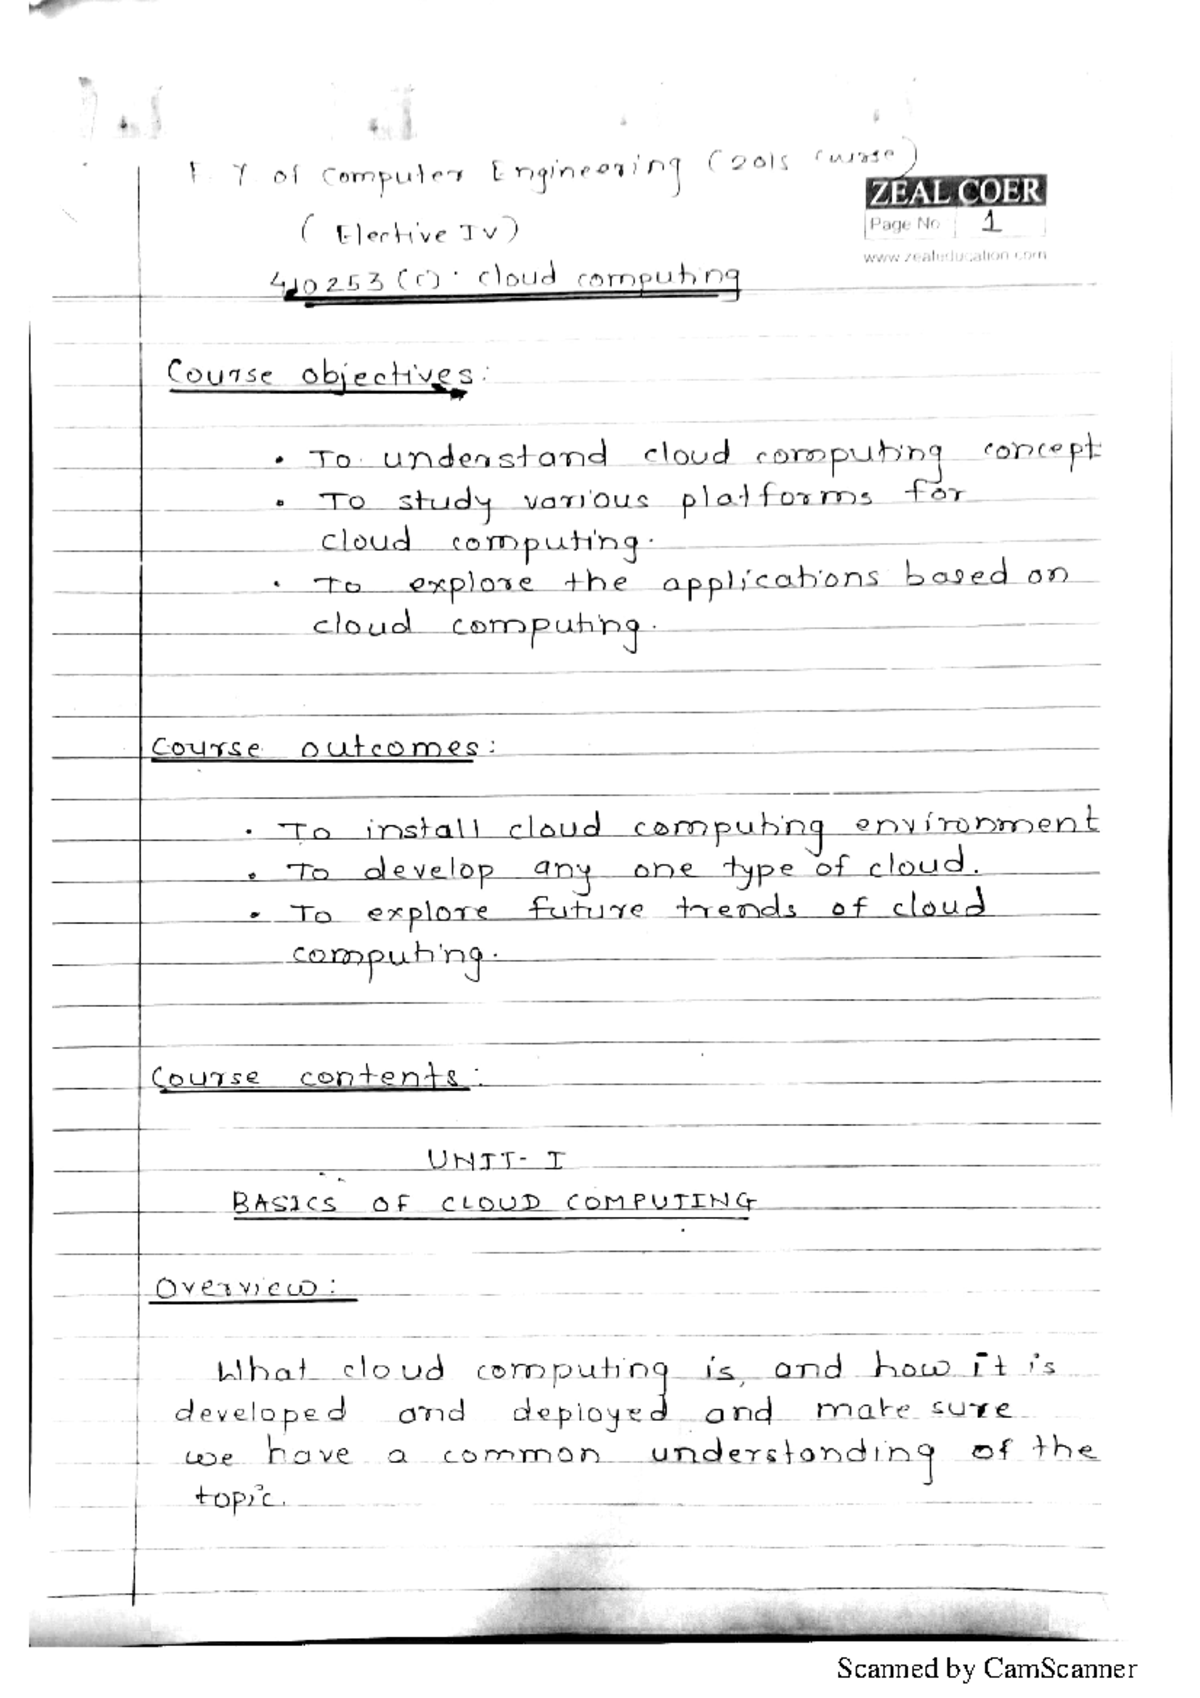 F. Y of Computer Engineering (2015 Curse)
ZEAL COER
Page No 1
www.zealeducation.com
( Elective IV)
410253(C). cloud computing
Course objectives:
• To understand cloud computing concept
• To study various platforms for
cloud computing.
• To explore the applications based on
cloud computing.
Course outcomes:
• To install cloud computing environment
• To develop any one type of cloud.
• To explore future trends of cloud
computing.
Course contents:
UNIT- I
BASICS OF CLOUD COMPUTING
Overview:
What cloud computing is, and how it is
developed and deployed and make sure
we have a common understanding of the
topic.
Scanned by CamScanner